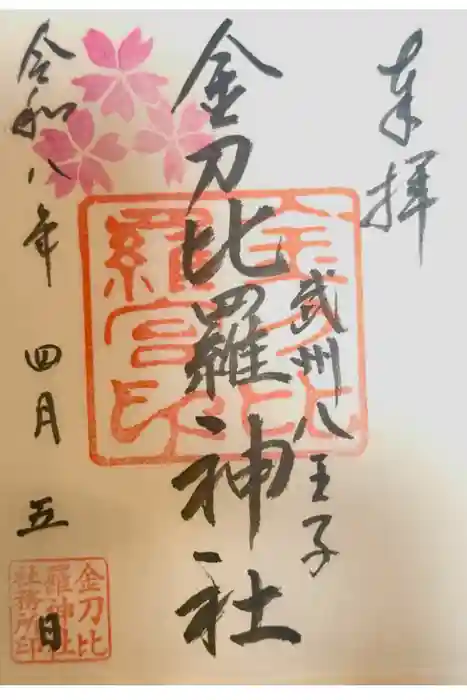 奉拝
武州八王子
金刀比羅神社
令和八年四月五日
金刀比
羅宮印
金刀比
羅神社
社務所印